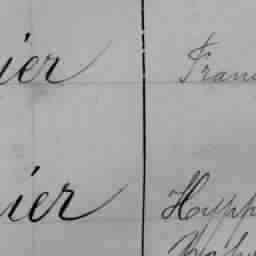 ier Fran
ier Hypp